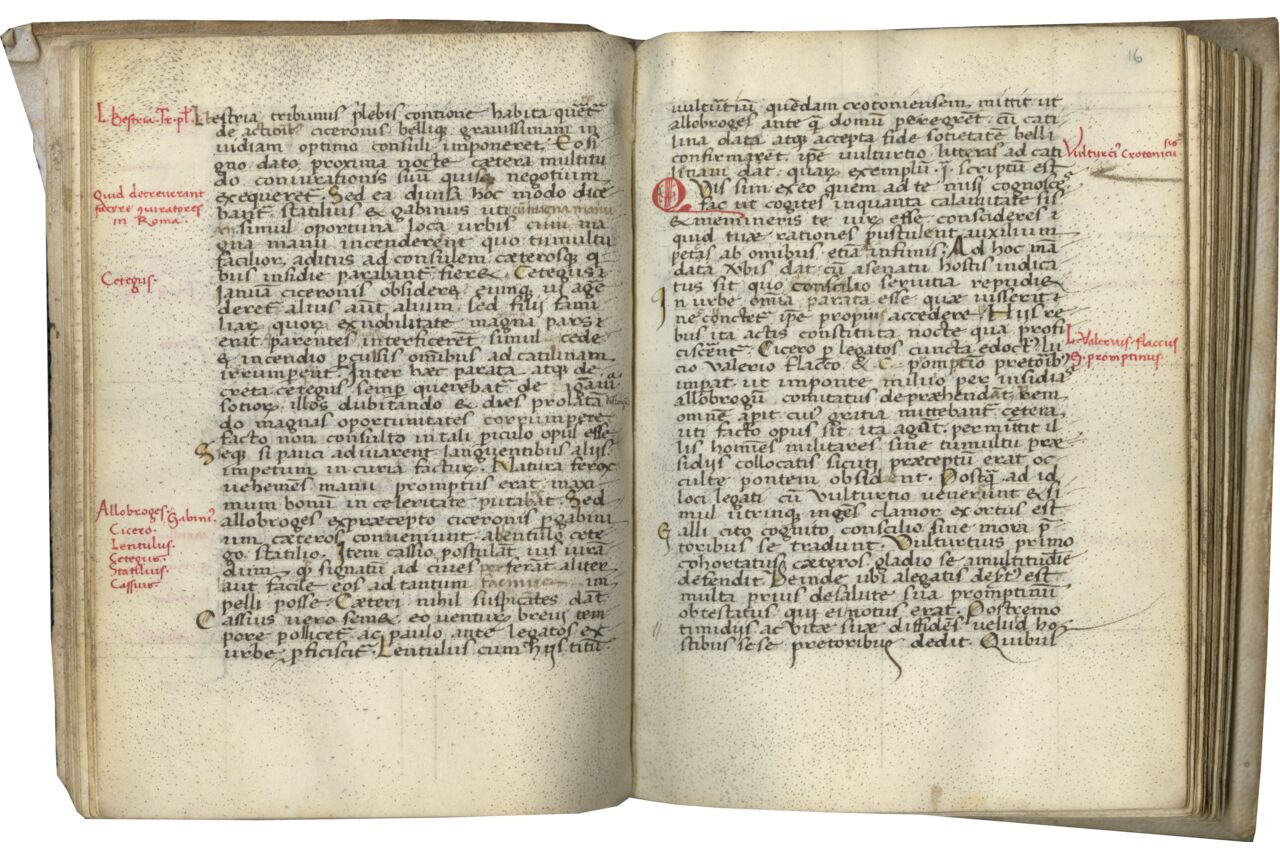 L. bestria. Tr. pł.
Quid decreverant
facere ꝯiuratores
in Roma.
Cetegus.
Allobroges. Gabini9.
Cicero.
Lentulus.
Cetegus.
Statilius.
Cassius.
L bestria tribunus plebis contione habita
de actioīb ciceronis belliq; gravissimam in
uidiam optimo consuli imponeret. Eo si
gno dato proxima nocte cætera multitu
do coniurationis suū quisq; negotium
exequeret. Sed ea divisa hoc modo dice
bant. statilius & gabinus uti cū magna manu
simul oportuna loca urbis cum ma
gna manu incenderent quo tumultu
facilior aditus ad consulem cæterosque q
bus insidie parabant fieret. Cetegus
Januā ciceronis obsideret eumq; ui age
deret alius aūt alium. sed filij fami
liar, quor, ex nobilitate magna pars
erat parentes interficerent simul cede
& incendio pculsis omībus ad catilinam
irrumpent. Inter hæc parata atq; de
creta cetegus semp querebat de igauī
sotior, illos dubitando & dies prolata
do magnas oportunitates corrumpere
facto non consulto in tali piculo opus esse
Seque si pauci adiuvarent languentibus alijs
impetum in curia factur. Natura ferox
uehemēs manu promptus erat. maxi
mum bonū in celeritate putabat. Sed
allobroges ex præcepto ciceronis p gabini
um cæteros conveniunt. a lentulo cete
go statilio. Item cassio postulāt ius iura
dum q signatū ad cives perferāt. aliter
aut facile eos ad tantum im
pelli posse. Cæteri nihil suspicātes dāt
Cassius uero semet eo venturū brevi tem
pore pollicet. ac paulo ante legatos ex
urbe pficiscit. Lentulus cum hijs titū
16
uulturtiū quēdam crotoniensem mittit ut
allobroges ante q domū peregret cū cati
lina data atq; accepta fide societatē belli
confirmaret. ipse uulturtio litteras ad cati
linam dat. quar, exemplū .i. scriptū est
QVis sim ex eo quem ad te misi cognosce
fac ut cogites in quanta calamitate sis
& memineris te vir esse. consideres
quid tuæ rationes pustulent auxilium
petas ab omībus etiā infimis. Ad hoc mā
data dat cū a senatu hostis indica
tus sit quo conscilio servitia repudiet
In urbe omīa parata esse quæ iusserit
ne conctet ipse propius accedere. Hijs re
bus ita actis constituta nocte qua profi
ciscerēt. Cicero p legatos cuncta edoct, lu
cio valerio flacco & C. pomptio pretorib
impat. ut in ponte miluio per insidias
allobrogū comitatus depræhendāt. rem
omnē apit cui gratia mittebant. cetera
uti facto opus sit ita agāt. permittit il
lis homines militares sine tumultu præ
sidijs collocatis sicuti præceptū erat oc
culte pontem obsident. Postq ad id
loci legati cū Vulturtio venerunt & si
mul utrinque ingēs clamor exortus est
Galli cito cognito conscilio sine mora p
toribus se tradunt. Vulturtius primo
cohortatus cæteros gladio se a multitudīe
defendit. Deinde ubi a legatis desertus est
multa prius de salute sua promptinū
obtestatus qui ei notus erat. Postremo
timidus ac vitæ suæ diffidēs velud ho
stibus sese pretoribus dedit. Quibus
Vulturci9 Crotoniēsis
L. Valerius flaccus
G. promptinus.